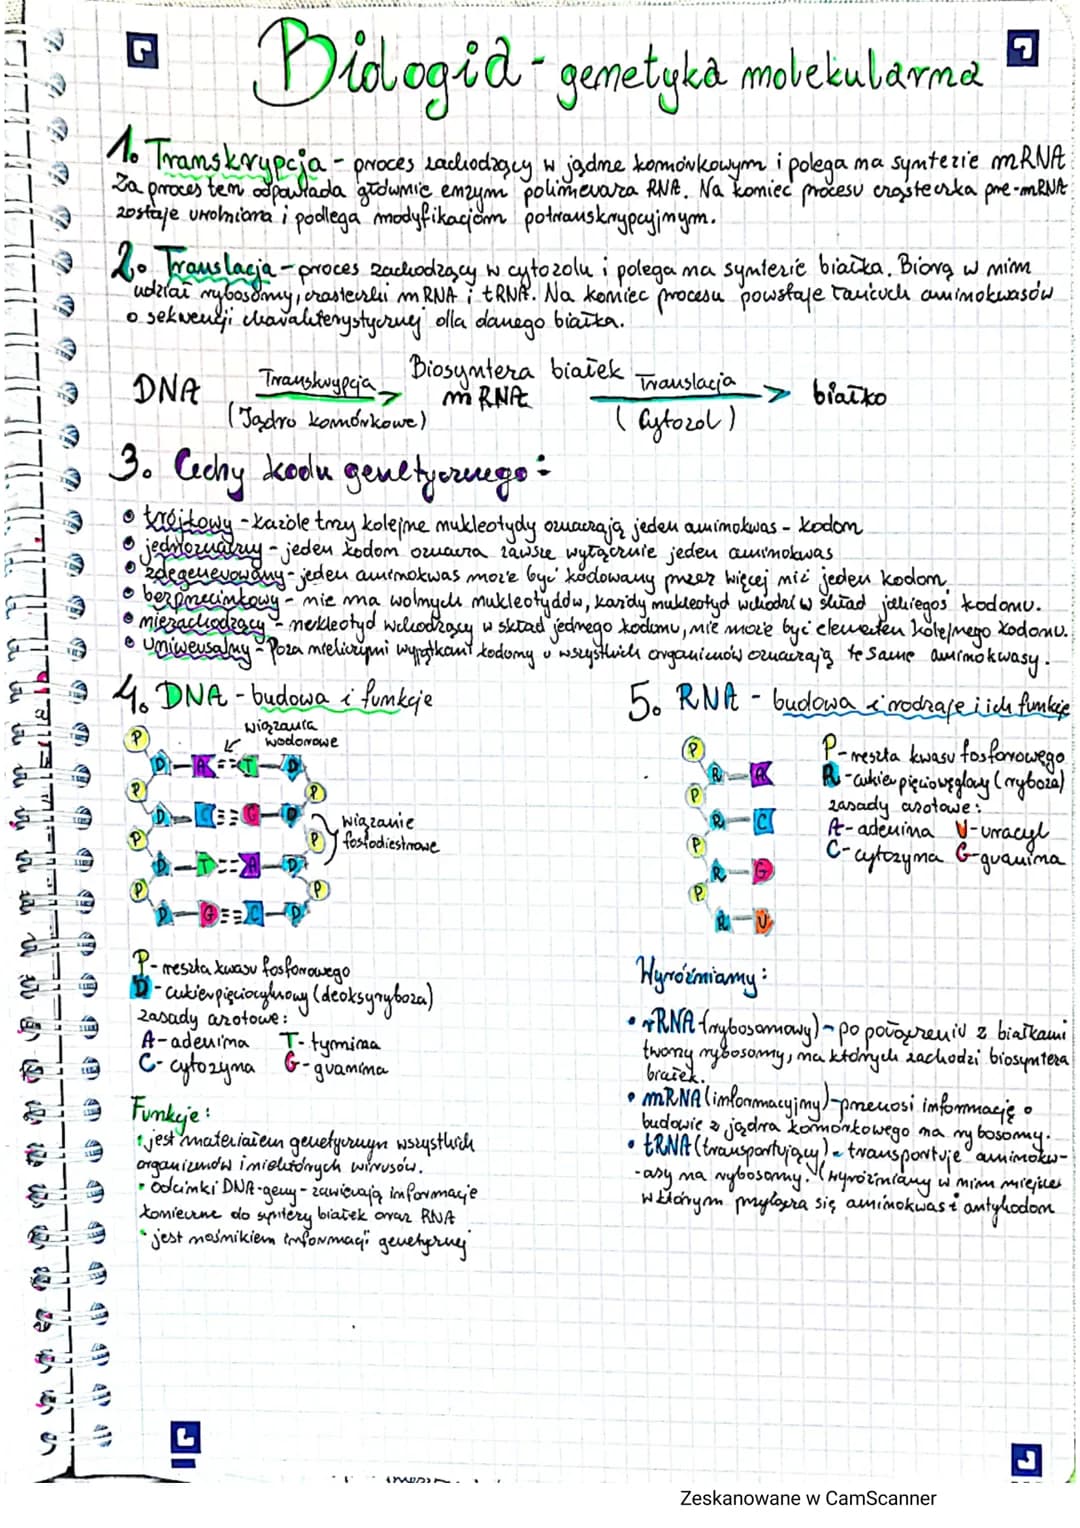 Biologia - genetyka molekularna
1. Transkrypcja - proces zachodzący w jądrze komórkowym i polega na syntezie mRNA
Za proces ten odpowiada głównie enzym polimeraza RNA. Na koniec procesu cząsteczka pre-mRNA
zostaje uwolniona i podlega modyfikacjom potranskrypcyjnym.
2. Translacja - proces zachodzący w cytozolu i polega na syntezie białka. Biorą w nim
udział rybosomy, cząsteczki mRNA i tRNA. Na koniec procesu powstaje łańcuch aminokwasów
o sekwencji charakterystycznej dla danego białka.
Biosynteza białek
DNA Transkrypcja mRNA Translacja białko
(Jądro komórkowe) (Cytozol)
3. Cechy kodu genetycznego:
• trójkowy - każde trzy kolejne nukleotydy oznaczają jeden aminokwas - kodon
• jednoznaczny - jeden kodon oznacza zawsze wyłącznie jeden aminokwas
• zdegenerowany - jeden aminokwas może być kodowany przez więcej niż jeden kodon.
• bezprzecinkowy - nie ma wolnych nukleotydów, każdy nukleotyd wchodzi w skład jakiegoś kodonu.
• niezachodzący - nukleotyd wchodzący w skład jednego kodonu, nie może być elementem kolejnego kodonu.
• uniwersalny - Poza nielicznymi wyjątkami kodony u wszystkich organizmów oznaczają te same aminokwasy.
4. DNA - budowa i funkcje
wiązania
wodorowe
P
D A T D
P P
D C G D
wiązanie
fosfodiestrowe
P P
D T A D
P P
D G C D
P - reszta kwasu fosforowego
D - cukier pięciowęglowy (deoksyryboza)
zasady azotowe:
A - adenina T - tymina
C - cytozyna G - guanina
Funkcje:
• jest materiałem genetycznym wszystkich
organizmów i niektórych wirusów.
• Odcinki DNA - geny - zawierają informacje
konieczne do syntezy białek oraz RNA
• jest nośnikiem informacji genetycznej
5. RNA - budowa i rodzaje i ich funkcje
P
R A
P
R C
P
R G
P
R U
P - reszta kwasu fosforowego
R - cukier pięciowęglowy (ryboza)
zasady azotowe:
A - adenina U - uracyl
C - cytozyna G - guanina
Wyróżniamy:
• rRNA (rybosomowy) - po połączeniu z białkami
tworzy rybosomy, na których zachodzi biosynteza
białek.
• mRNA (informacyjny) - przenosi informację o
budowie z jądra komórkowego na rybosomy.
• tRNA (transportujący) - transportuje aminokw-
-asy na rybosomy. (wyróżniany w nim miejsce
w którym przyłącza się aminokwas i antykodon
Zeskanowane w CamScanner